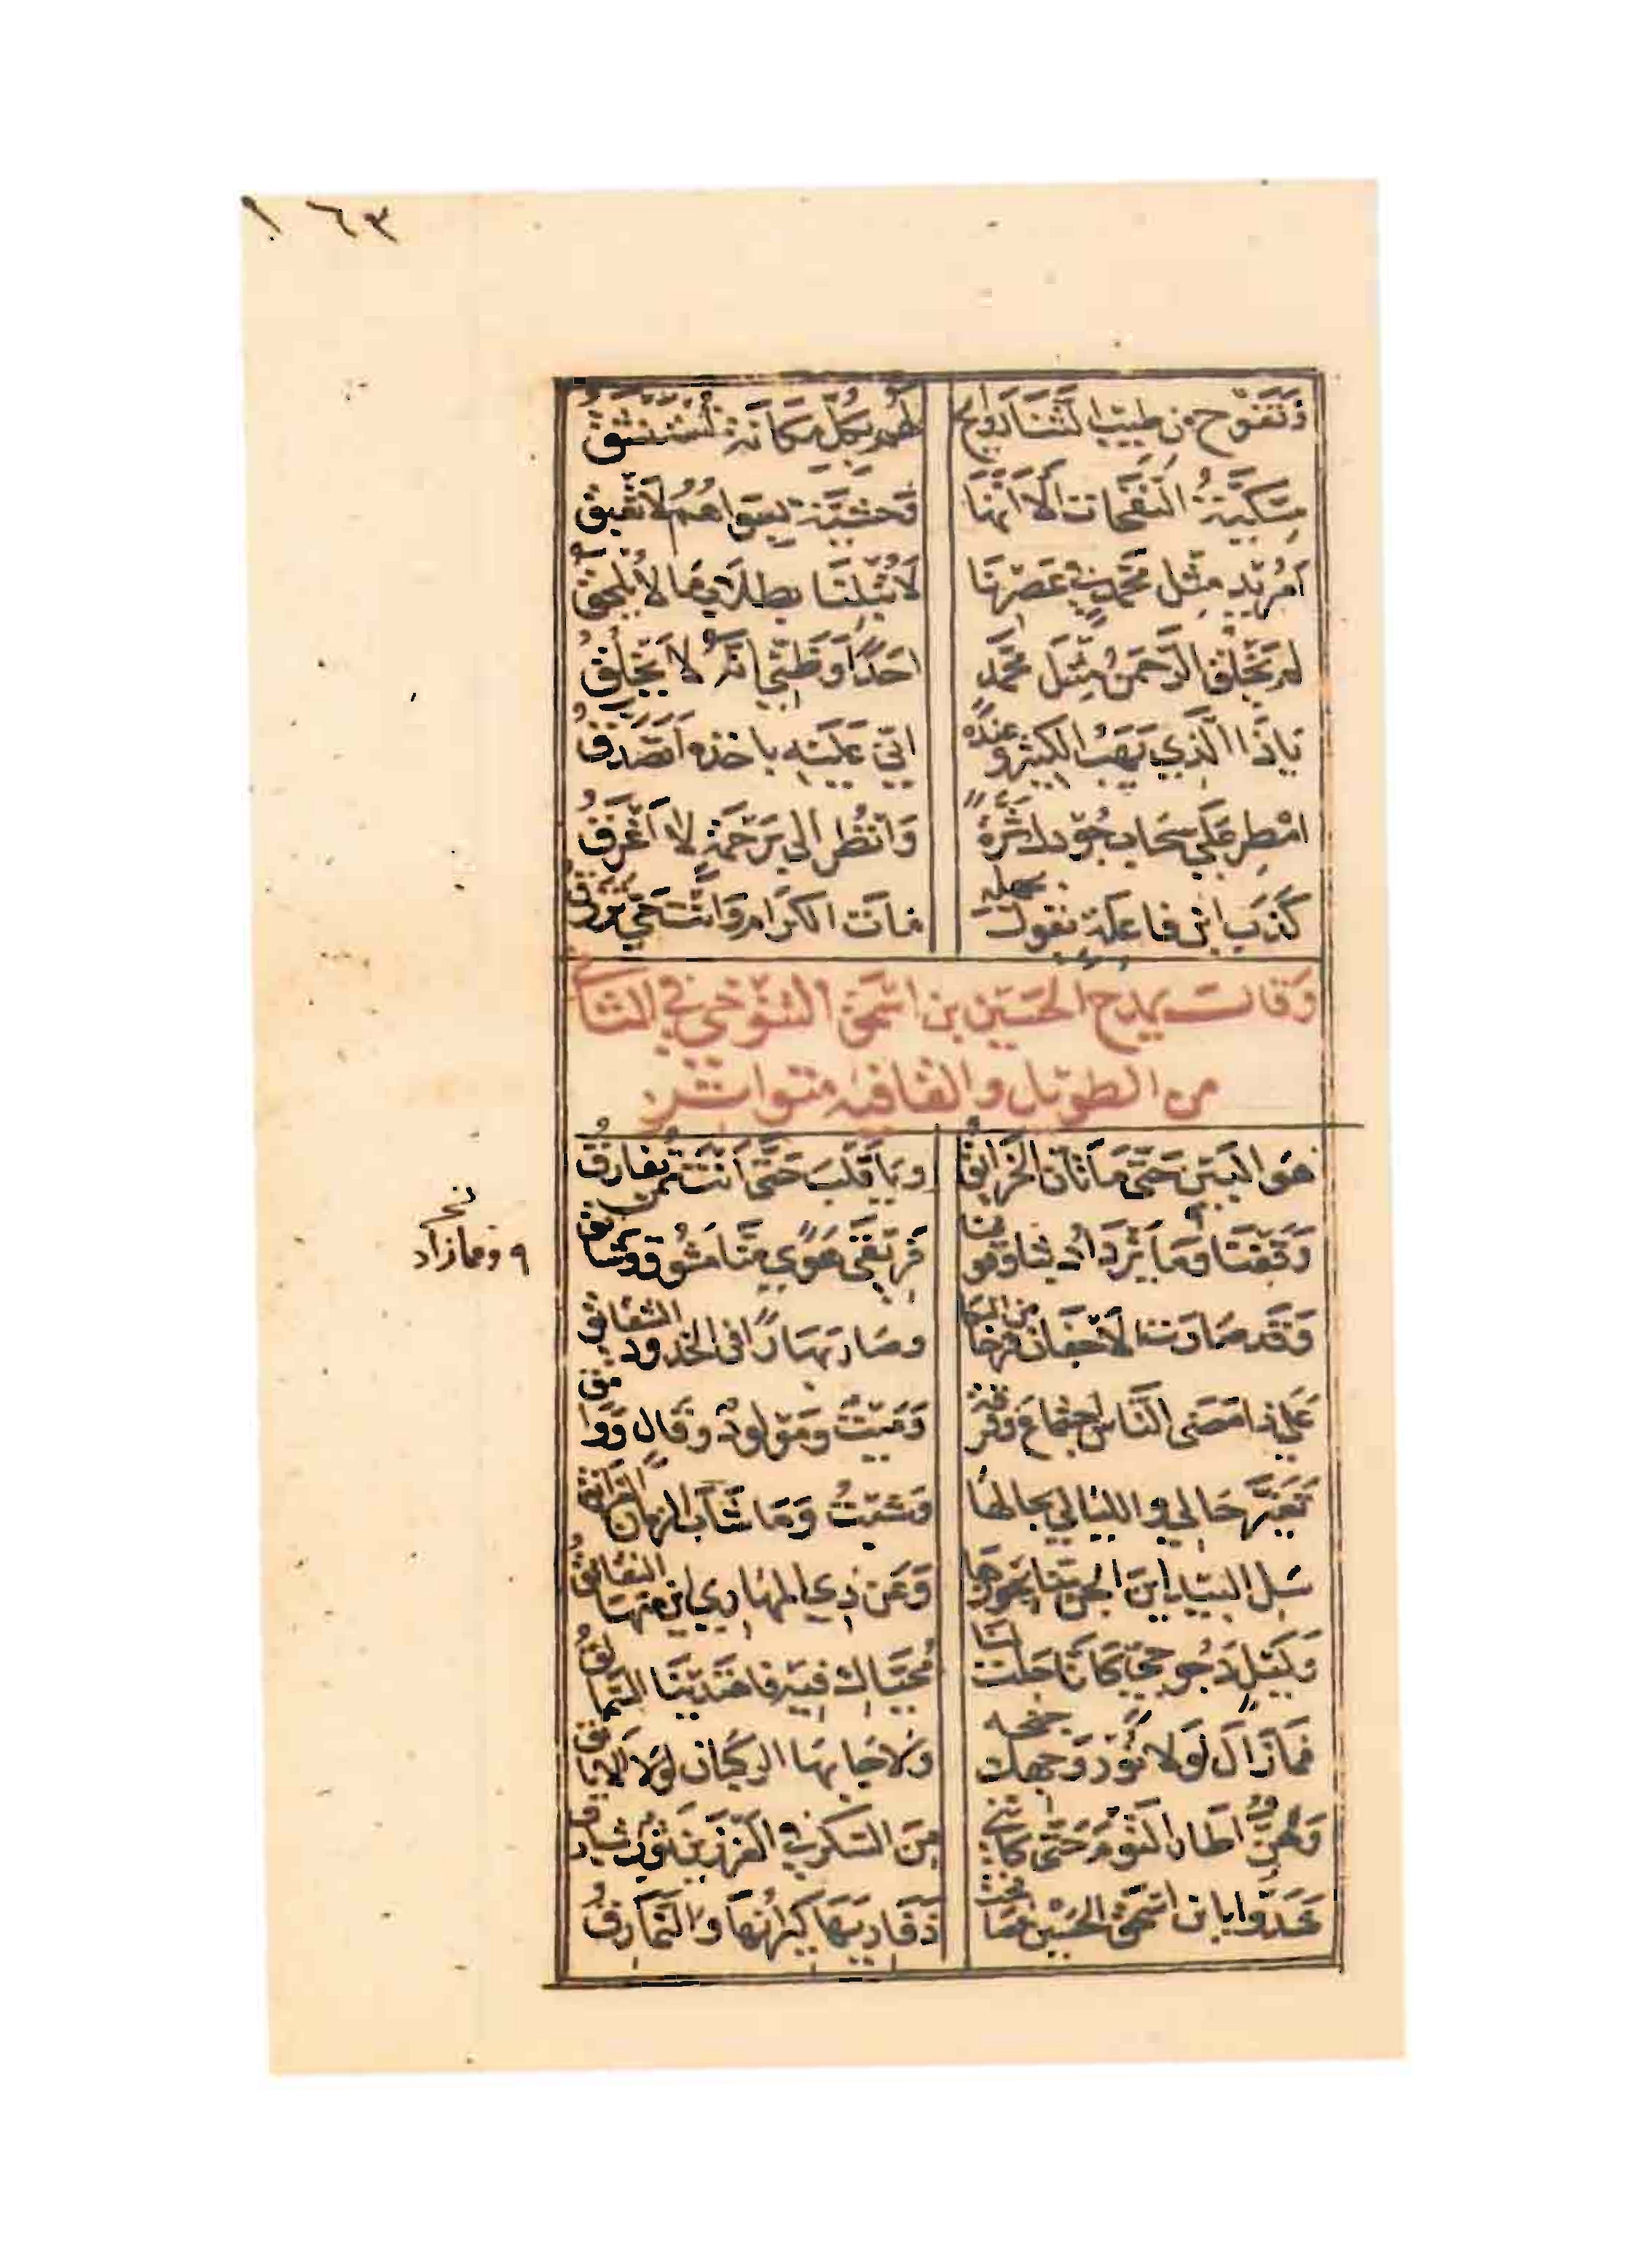 ١٦٣
وَتَفُوحُ من طيب الثَّنَاءِ رَوَائح لهم بكلِّ مَكَانَة تُسْتَنْشَقُ
مِسْكِيّةُ النَّفَحَات الَّا انَّهَا وَحْشيَّة بسواهُمُ لَا تَعْبَقُ
امُرِيدَ مِثْل مُحَمَّدٍ في عَصْرِنَا لَا تُبْلِنَا بطِلَابِ مَا لَا يُلْحَقُ
لم يَخْلُق الرَّحْمَنُ مِثْلَ مُحَمَّد احَدًا وَظَنِّي انَّهُ لا يَخْلُقُ
يَا ذَا الَّذي يَهَبُ الكثيرَ وعِنْدَهُ انِّي عَلَيْهِ باخذه اتَصَدَّقُ
امْطِر عَليَّ سَحَابَ جُوْدكَ ثَرَّةً وَانْظُر الي بَرَحْمَةٍ لا اَغْرَقُ
كَذَبَ ابْن فاعِلَة يَقُولُ بجهله مَاتَ الكرَامُ وَانْتَ حَيّ تُرْزَقُ
وَقَالَ يمدح الحُسَيْن بن اسْحٰق التنُوْخي في الثاني
من الطويل والقافية متواتر
هوَ البَيْن حَتَّى مَا تَأَنَّى الحَزَائِقُ ويَا قَلْبُ حَتَّى اَنْتَ مِمَّن تُفارِقُ
وَقَفْنَا وَمِمَّا زَادَ بَثًّا وُقُوفُنَا فَرِيْقَيْ هَوًي مِنَّا مَشُوْق وشَائِقُ
نخ
٩ ومما زاد
وَقَد صَارَت الأَجْفَان قَرْحَا من البكا وصَارَ بَهَارًا في الخدود الشقائقُ
عَلي ذا مَضَى النَّاس اجتماع وفُرقة وَمَيْتٌ وَمَوْلودٌ وقَالٍ ووامق
تَغَيَّرَ حَالي والليَالي بحالهَا وَشِبْتُ وَمَا شَابَ الزمان الغرانق
سَل البيْد اينَ الجنُّ مِنَّا بجوزها وَعَن ذِي المهاري اين منهَا النقَانقُ
وَلَيْلٍ دَجُوجيٍّ كَأَنَّا جَلَت لنا مُحَيَّاك فيْه فاهتَدَيْنَا السَّمالقُ
فَمَا زَالَ لَولا نُوْر وَجهك جنحه وَلا جَابهَا الركبان لوْلا الايانق
وَهَزٌّ اطَارَ النَّوْمَ حَتّى كأنّني مِنَ السّكر في الغَرْزَيْنِ ثَوْب شبارق
شَدَوا بابن اسْحٰق الحُسَيْن فصافحت ذَفَارِيَهَا كيرَانُهَا وَالنَّمَارِقُ